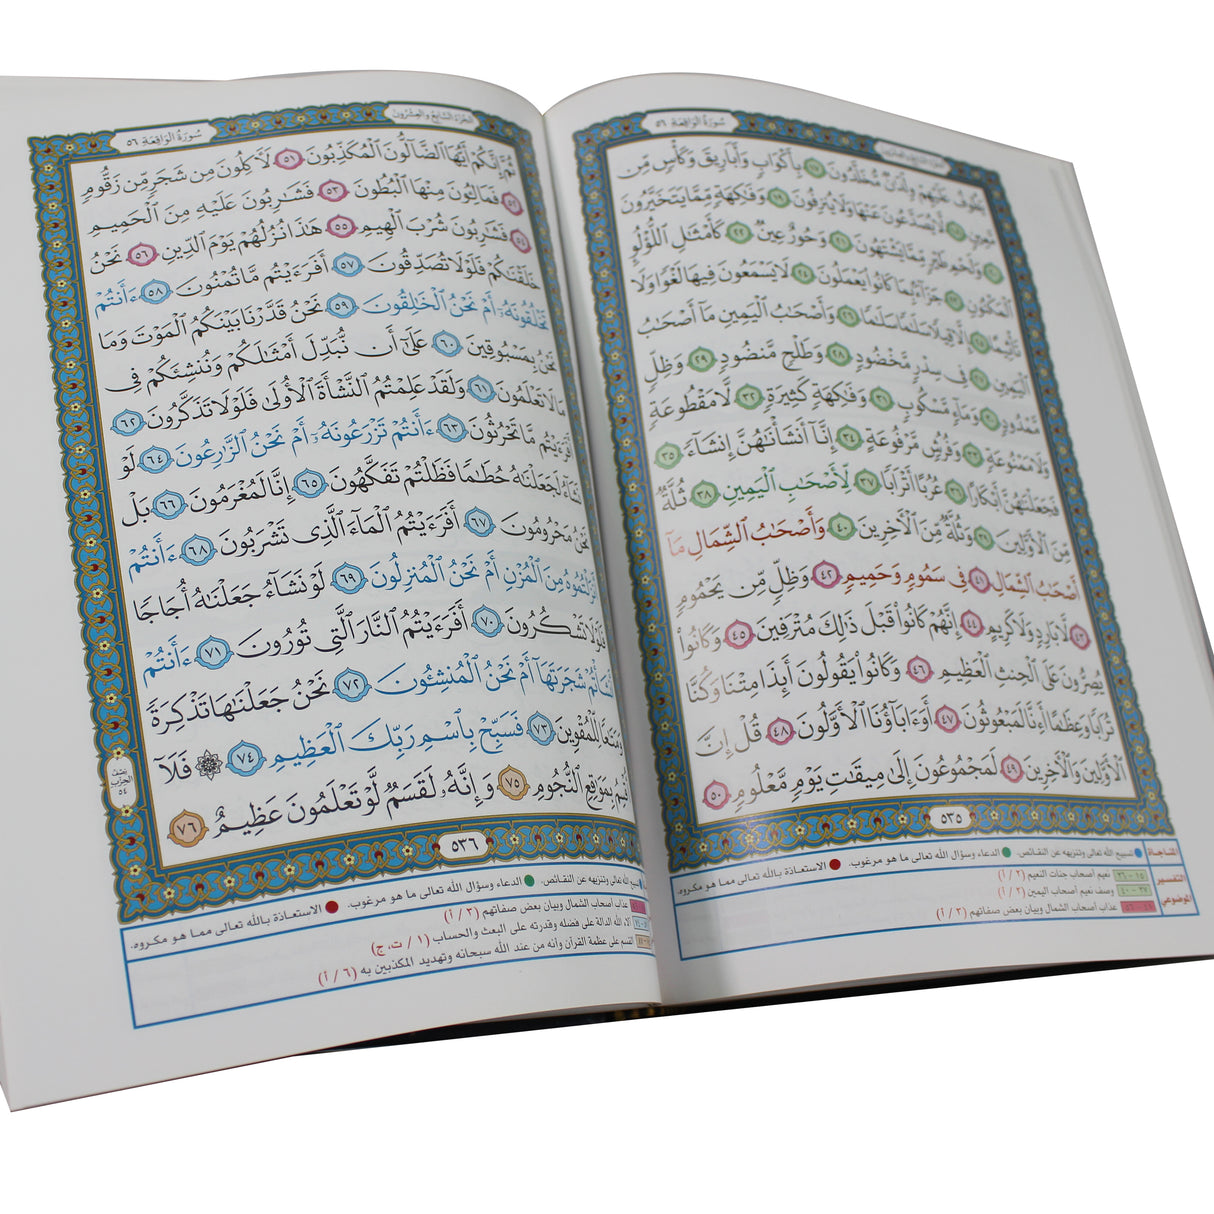 سُورَةُ الوَاقِعَةِ ٥٦
الجُزءُ السَّابِعُ والعِشْرُونَ
يَطُوفُ عَلَيْهِمْ وِلْدَٰنٌ مُّخَلَّدُونَ ١٧ بِأَكْوَابٍ وَأَبَارِيقَ وَكَأْسٍ مِّن
مَّعِينٍ ١٨ لَّا يُصَدَّعُونَ عَنْهَا وَلَا يُنزِفُونَ ١٩ وَفَٰكِهَةٍ مِّمَّا يَتَخَيَّرُونَ
٢٠ وَلَحْمِ طَيْرٍ مِّمَّا يَشْتَهُونَ ٢١ وَحُورٌ عِينٌ ٢٢ كَأَمْثَٰلِ ٱللُّؤْلُؤِ
ٱلْمَكْنُونِ ٢٣ جَزَآءًۢ بِمَا كَانُوا۟ يَعْمَلُونَ ٢٤ لَا يَسْمَعُونَ فِيهَا لَغْوًا وَلَا
تَأْثِيمًا ٢٥ إِلَّا قِيلًا سَلَٰمًا سَلَٰمًا ٢٦ وَأَصْحَٰبُ ٱلْيَمِينِ مَآ أَصْحَٰبُ
ٱلْيَمِينِ ٢٧ فِى سِدْرٍ مَّخْضُودٍ ٢٨ وَطَلْحٍ مَّنضُودٍ ٢٩ وَظِلٍّ
مَّمْدُودٍ ٣٠ وَمَآءٍ مَّسْكُوبٍ ٣١ وَفَٰكِهَةٍ كَثِيرَةٍ ٣٢ لَّا مَقْطُوعَةٍ
وَلَا مَمْنُوعَةٍ ٣٣ وَفُرُشٍ مَّرْفُوعَةٍ ٣٤ إِنَّآ أَنشَأْنَٰهُنَّ إِنشَآءً ٣٥
فَجَعَلْنَٰهُنَّ أَبْكَارًا ٣٦ عُرُبًا أَتْرَابًا ٣٧ لِّأَصْحَٰبِ ٱلْيَمِينِ ٣٨ ثُلَّةٌ
مِّنَ ٱلْأَوَّلِينَ ٣٩ وَثُلَّةٌ مِّنَ ٱلْءَاخِرِينَ ٤٠ وَأَصْحَٰبُ ٱلشِّمَالِ مَآ
أَصْحَٰبُ ٱلشِّمَالِ ٤١ فِى سَمُومٍ وَحَمِيمٍ ٤٢ وَظِلٍّ مِّن يَحْمُومٍ
٤٣ لَّا بَارِدٍ وَلَا كَرِيمٍ ٤٤ إِنَّهُمْ كَانُوا۟ قَبْلَ ذَٰلِكَ مُتْرَفِينَ ٤٥ وَكَانُوا۟
يُصِرُّونَ عَلَى ٱلْحِنثِ ٱلْعَظِيمِ ٤٦ وَكَانُوا۟ يَقُولُونَ أَئِذَا مِتْنَا وَكُنَّا
تُرَابًا وَعِظَٰمًا أَءِنَّا لَمَبْعُوثُونَ ٤٧ أَوَءَابَآؤُنَا ٱلْأَوَّلُونَ ٤٨ قُلْ إِنَّ
ٱلْأَوَّلِينَ وَٱلْءَاخِرِينَ ٤٩ لَمَجْمُوعُونَ إِلَىٰ مِيقَٰتِ يَوْمٍ مَّعْلُومٍ ٥٠
٥٣٥
المناجاة تسبيح الله تعالى وتنزيهه عن النقائص. الدعاء وسؤال الله تعالى ما هو مرغوب. الاستعاذة بالله تعالى مما هو مكروه.
التفسير الموضوعي
١٥ - ٢٦ نعيم أصحاب جنات النعيم (٢ / أ)
٢٧ - ٤٠ وصف نعيم أصحاب اليمين (٢ / أ)
٤١ - ٥٦ عذاب أصحاب الشمال وبيان بعض صفاتهم (٢ / أ)
الجُزءُ السَّابِعُ والعِشْرُونَ
سُورَةُ الوَاقِعَةِ ٥٦
ثُمَّ إِنَّكُمْ أَيُّهَا ٱلضَّآلُّونَ ٱلْمُكَذِّبُونَ ٥١ لَءَاكِلُونَ مِن شَجَرٍ مِّن زَقُّومٍ
٥٢ فَمَالِـُٔونَ مِنْهَا ٱلْبُطُونَ ٥٣ فَشَٰرِبُونَ عَلَيْهِ مِنَ ٱلْحَمِيمِ
٥٤ فَشَٰرِبُونَ شُرْبَ ٱلْهِيمِ ٥٥ هَٰذَا نُزُلُهُمْ يَوْمَ ٱلدِّينِ ٥٦ نَحْنُ
خَلَقْنَٰكُمْ فَلَوْلَا تُصَدِّقُونَ ٥٧ أَفَرَءَيْتُم مَّا تُمْنُونَ ٥٨ ءَأَنتُمْ
تَخْلُقُونَهُۥٓ أَمْ نَحْنُ ٱلْخَٰلِقُونَ ٥٩ نَحْنُ قَدَّرْنَا بَيْنَكُمُ ٱلْمَوْتَ وَمَا
نَحْنُ بِمَسْبُوقِينَ ٦٠ عَلَىٰٓ أَن نُّبَدِّلَ أَمْثَٰلَكُمْ وَنُنشِئَكُمْ فِى
مَا لَا تَعْلَمُونَ ٦١ وَلَقَدْ عَلِمْتُمُ ٱلنَّشْأَةَ ٱلْأُولَىٰ فَلَوْلَا تَذَكَّرُونَ ٦٢
أَفَرَءَيْتُم مَّا تَحْرُثُونَ ٦٣ ءَأَنتُمْ تَزْرَعُونَهُۥٓ أَمْ نَحْنُ ٱلزَّٰرِعُونَ ٦٤ لَوْ
نَشَآءُ لَجَعَلْنَٰهُ حُطَٰمًا فَظَلْتُمْ تَفَكَّهُونَ ٦٥ إِنَّا لَمُغْرَمُونَ ٦٦ بَلْ
نَحْنُ مَحْرُومُونَ ٦٧ أَفَرَءَيْتُمُ ٱلْمَآءَ ٱلَّذِى تَشْرَبُونَ ٦٨ ءَأَنتُمْ
أَنزَلْتُمُوهُ مِنَ ٱلْمُزْنِ أَمْ نَحْنُ ٱلْمُنزِلُونَ ٦٩ لَوْ نَشَآءُ جَعَلْنَٰهُ أُجَاجًا
فَلَوْلَا تَشْكُرُونَ ٧٠ أَفَرَءَيْتُمُ ٱلنَّارَ ٱلَّتِى تُورُونَ ٧١ ءَأَنتُمْ
أَنشَأْتُمْ شَجَرَتَهَآ أَمْ نَحْنُ ٱلْمُنشِـُٔونَ ٧٢ نَحْنُ جَعَلْنَٰهَا تَذْكِرَةً
وَمَتَٰعًا لِّلْمُقْوِينَ ٧٣ فَسَبِّحْ بِٱسْمِ رَبِّكَ ٱلْعَظِيمِ ٧٤ فَلَآ
أُقْسِمُ بِمَوَٰقِعِ ٱلنُّجُومِ ٧٥ وَإِنَّهُۥ لَقَسَمٌ لَّوْ تَعْلَمُونَ عَظِيمٌ ٧٦
نصف الحزب ٥٤
٥٣٦
تسبيح الله تعالى وتنزيهه عن النقائص. الدعاء وسؤال الله تعالى ما هو مرغوب. الاستعاذة بالله تعالى مما هو مكروه.
عذاب أصحاب الشمال وبيان بعض صفاتهم (٢ / أ)
الآلاء الدالة على فضله وقدرته على البعث والحساب (١ / ت، ج)
القسم على عظمة القرآن وأنه من عند الله سبحانه وتهديد المكذبين به (٦ / أ)